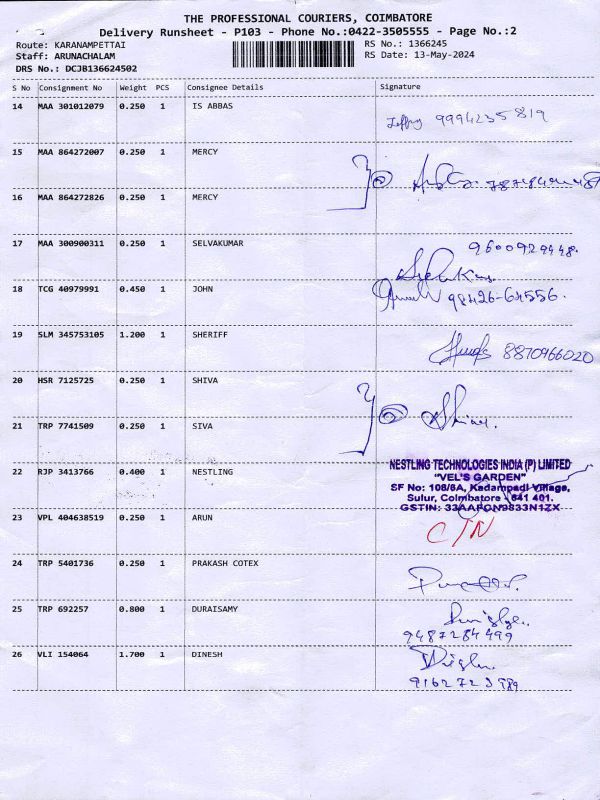 THE PROFESSIONAL COURIERS, COIMBATORE
Delivery Runsheet - P103 - Phone No.:0422-3505555 - Page No.:2
Route: KARANAMPETTAI
RS No.: 1366245
Staff: ARUNACHALAM
RS Date: 13-May-2024
DRS No.: DCJB136624502
S No Consignment No Weight PCS Consignee Details Signature
14 MAA 301012079 0.250 1 IS ABBAS
9994235819
15 MAA 864272007 0.250 1 MERCY
16 MAA 864272826 0.250 1 MERCY
17 MAA 300900311 0.250 1 SELVAKUMAR
9600929448.
18 TCG 40979991 0.450 1 JOHN
98426-64556.
19 SLM 345753105 1.200 1 SHERIFF
8870966020
20 HSR 7125725 0.250 1 SHIVA
21 TRP 7741509 0.250 1 SIVA
22 RJP 3413766 0.400 1 NESTLING
NESTLING TECHNOLOGIES INDIA (P) LIMITED
"VEL'S GARDEN"
SF No: 108/8A, Kadampadi Village,
Sulur, Coimbatore - 641 401.
GSTIN: 33AAFCN9833N1ZX
23 VPL 404638519 0.250 1 ARUN
C/N
24 TRP 5401736 0.250 1 PRAKASH COTEX
25 TRP 692257 0.800 1 DURAISAMY
9487284499
26 VLI 154064 1.700 1 DINESH